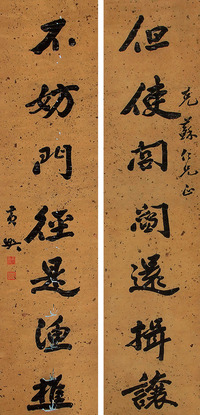 但使閭閻還揖讓
克蘇仁兄正
不妨門徑是漁樵
黃興